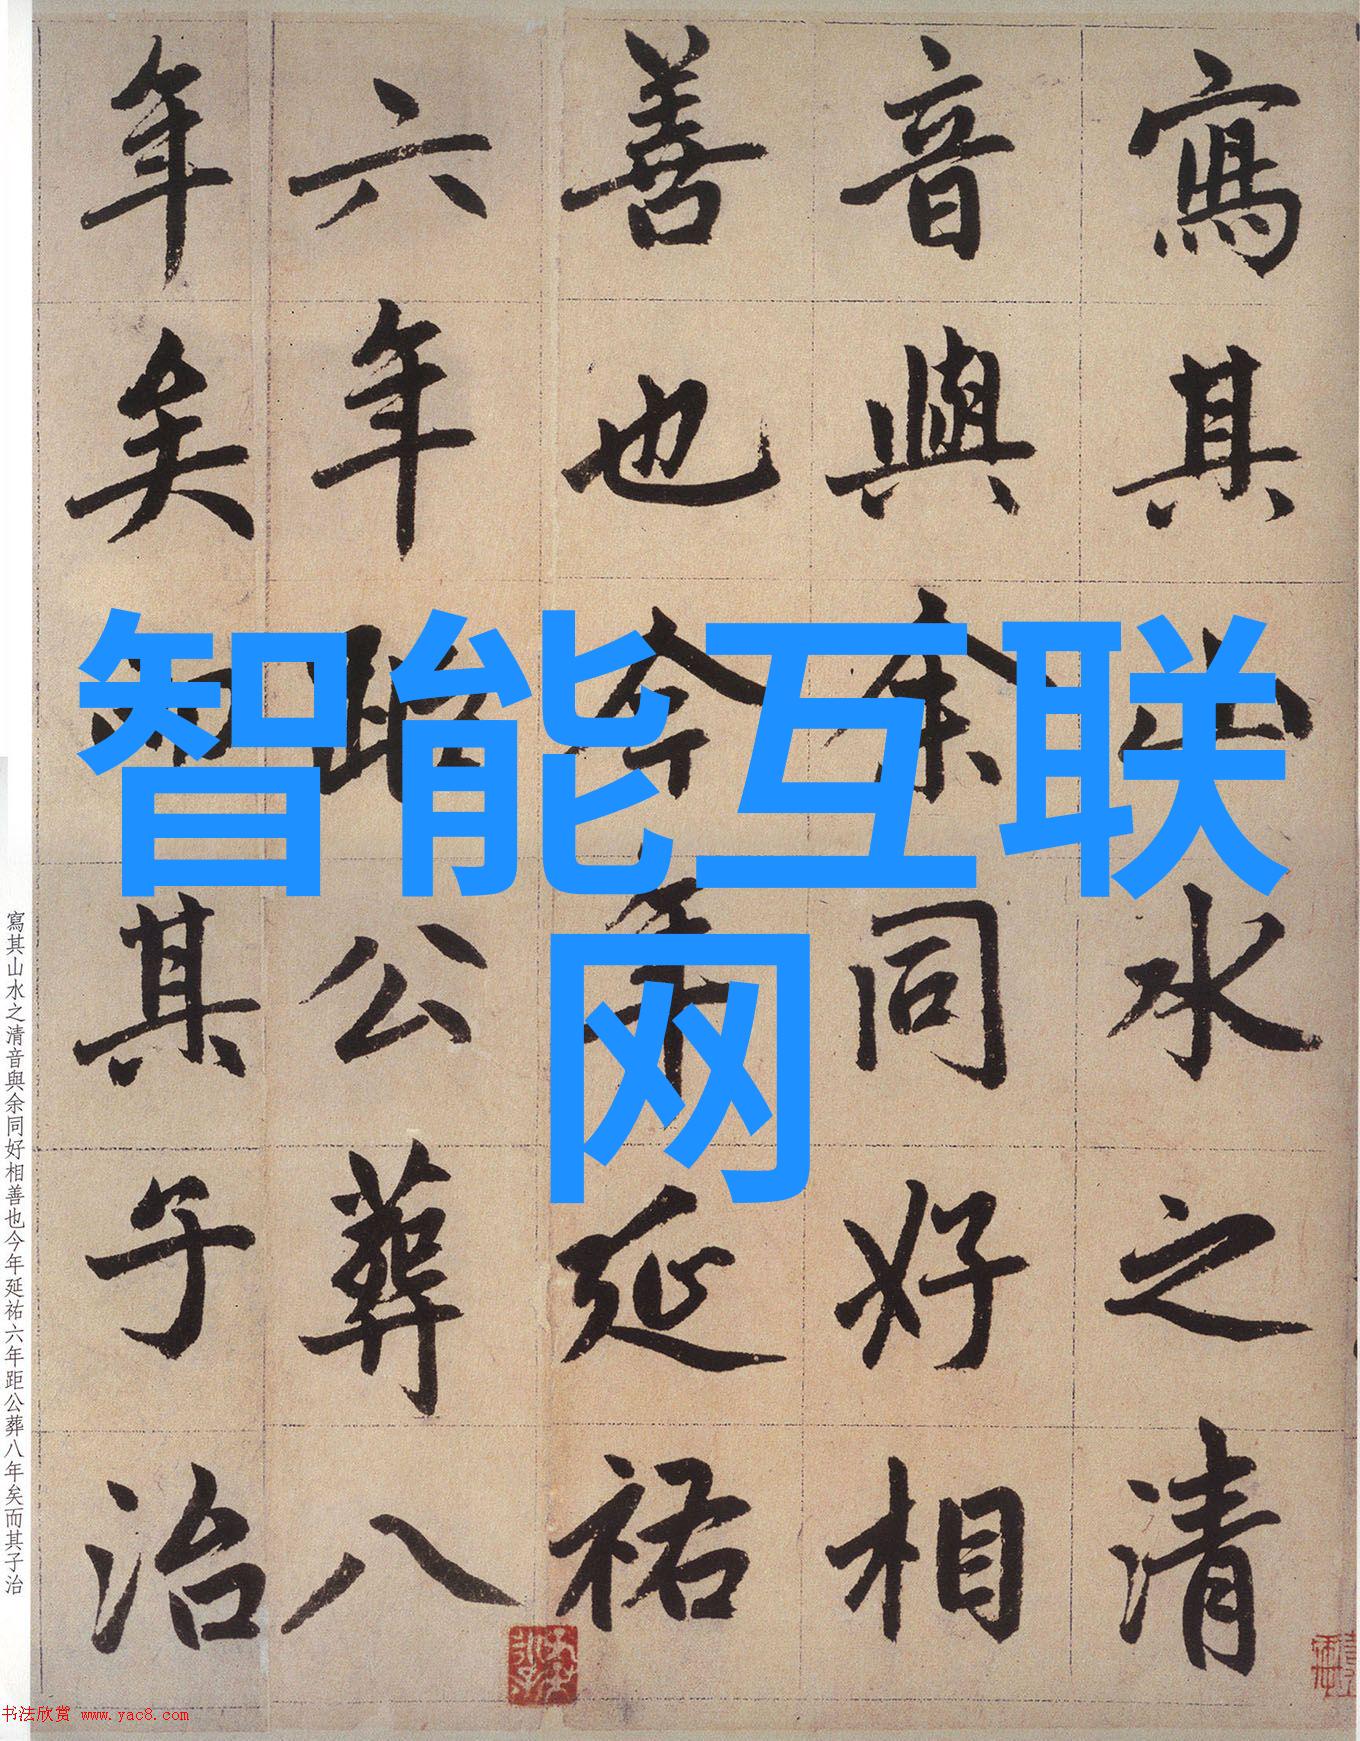 寫其山水之清
音與余同好相
善也今年延祐
六年距公葬八
年矣而其子治
智能互联
网
寫其山水之清音與余同好相善也今年延祐六年距公葬八年矣而其子治
书法欣赏 www.yac8.com